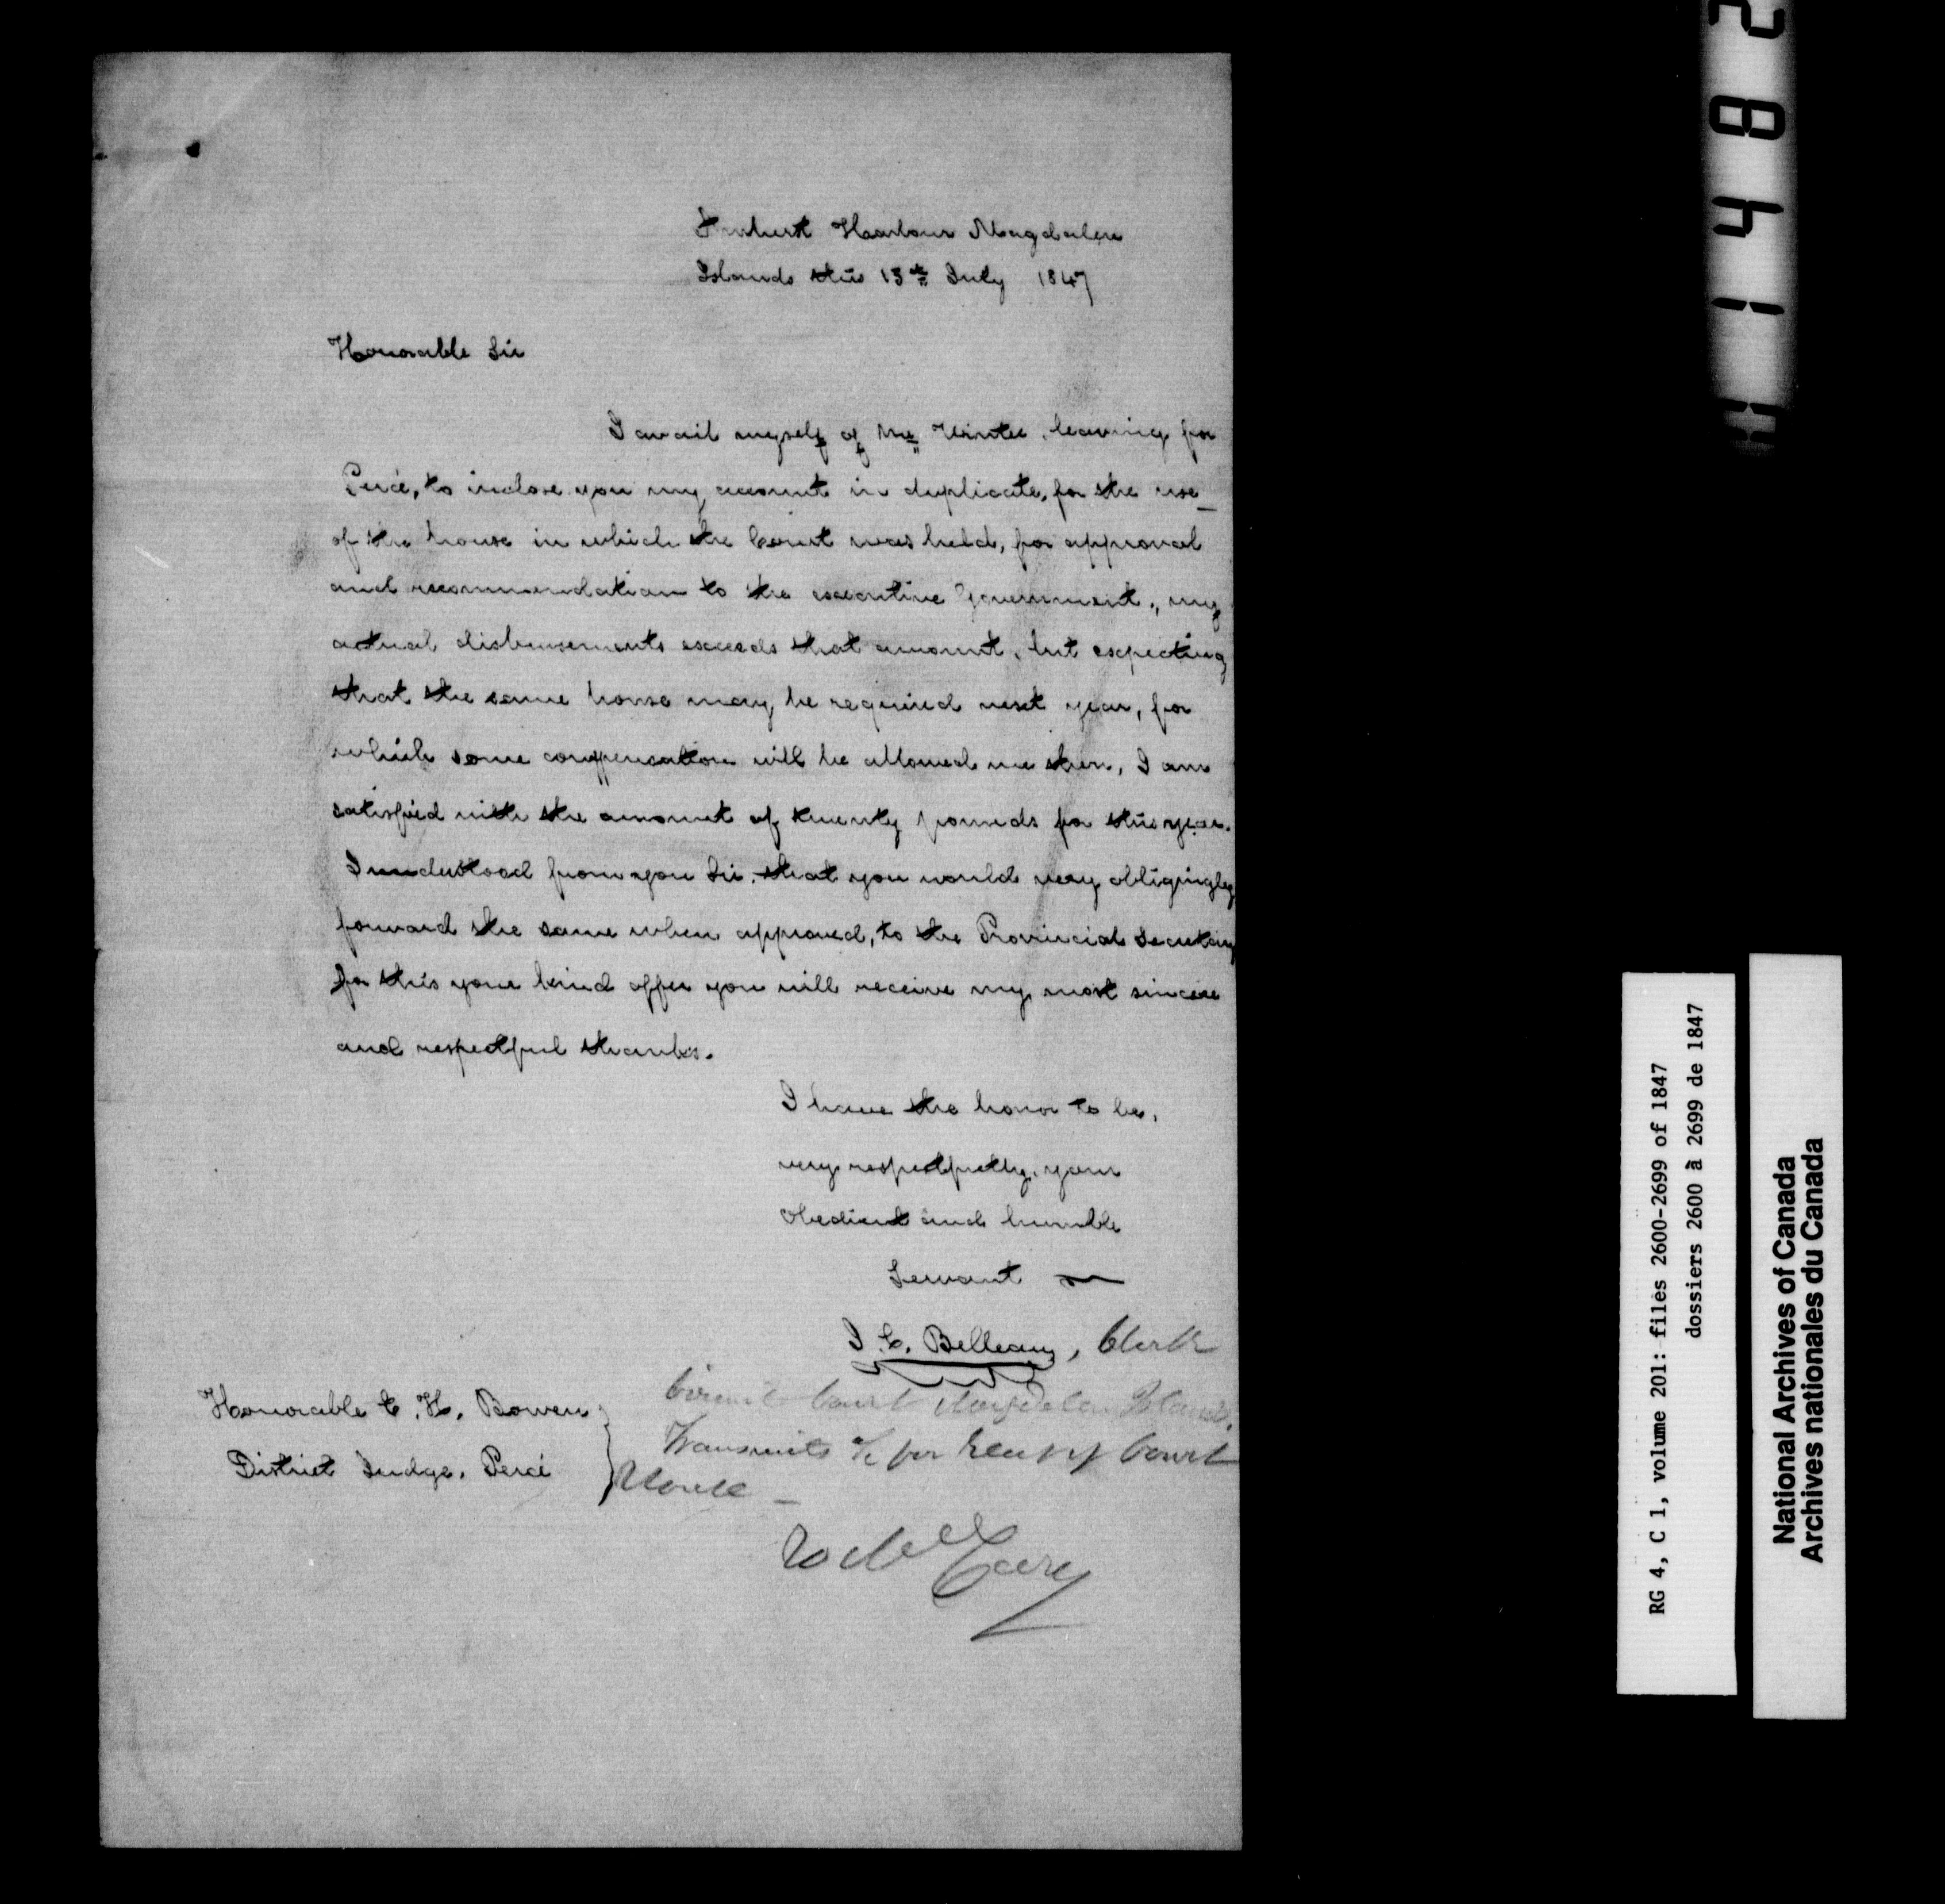 Amherst Harbour Magdalen
Islands this 13th July 1847
Honorable Sir
I avail myself of Mr Winter, leaving for
Percé, to inclose you my account in duplicate, for the use
of the house in which the Court was held, for approval
and recommendation to the executive Government, my
actual disbursements exceeds that amount, but expecting
that the same house may be required next year, for
which some compensation will be allowed me then, I am
satisfied with the amount of twenty pounds for this year.
I understood from you Sir, that you would very obligingly
forward the same when approved, to the Provincial Secretary
for this your kind offer you will receive my most sincere
and respectful thanks.
I have the honor to be,
very respectfully, your
obedient and humble
Servant
J. C. Belleau, Clerk
Circuit Court Magdalen Islands.
Transmits a/c for rent of Court
House
Honorable C. H. Bowen
District Judge, Percé
RG 4, C 1, volume 201: files 2600-2699 of 1847
dossiers 2600 à 2699 de 1847
National Archives of Canada
Archives nationales du Canada
H 1482